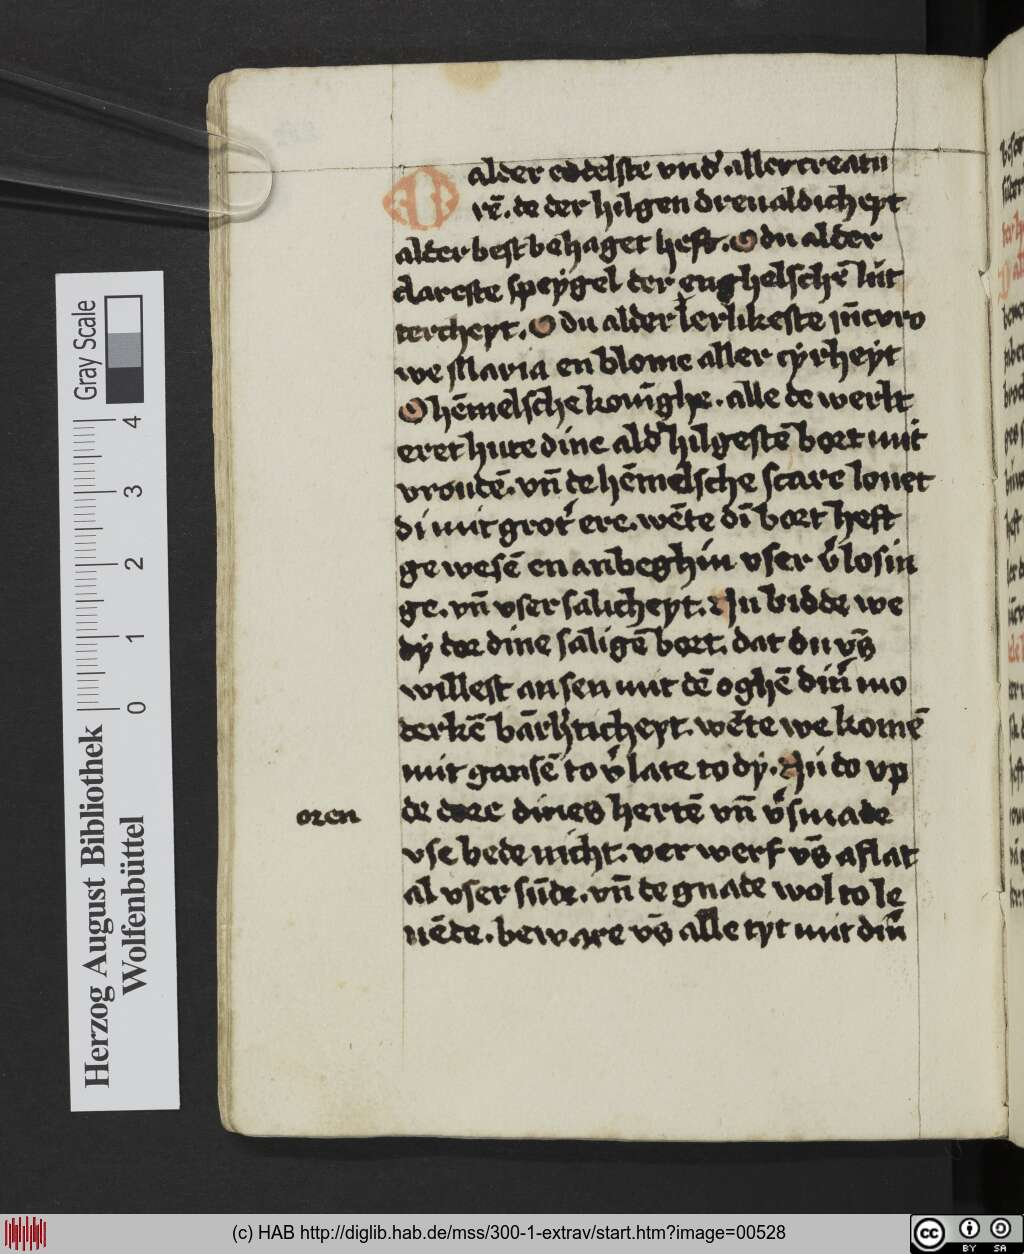 O alder eddelste vnd' aller creatu
rē. de der hilgen dreualdicheyt
alder best behaget heft. O du alder
clareste speygel der enghelschē lut
tercheyt. O du alder erlikeste jūcvro
we Maria en blome aller cyrheyt
O hēmelsche konīghe. alle de werlt
eret hute dine ald' hilgestē bort mit
vroudē. vn̄ de hēmelsche scare louet
di mit grot' ere. wēte dī bort heft
ge wesē en anbeghin vser v'losin
ge. vn̄ vser salicheyt. Nu bidde we
dy dor dine saligē bort. dat du vs̄
willest an sen mit dē oghē din' mo
derkē bārh'ticheyt. wēte we komē
mit gansē to v'late to dy. Nu do vp
de dore dines hertē vn̄ v'smade
oren
vse bede nicht. ver werf vs̄ aflat
al vser sūde. vn̄ de gnade wol to le
uēde. beware vs̄ alle tyt mit din'
Gray Scale
4
3
2
1
0
Herzog August Bibliothek
Wolfenbüttel
(c) HAB http://diglib.hab.de/mss/300-1-extrav/start.htm?image=00528
cc BY SA